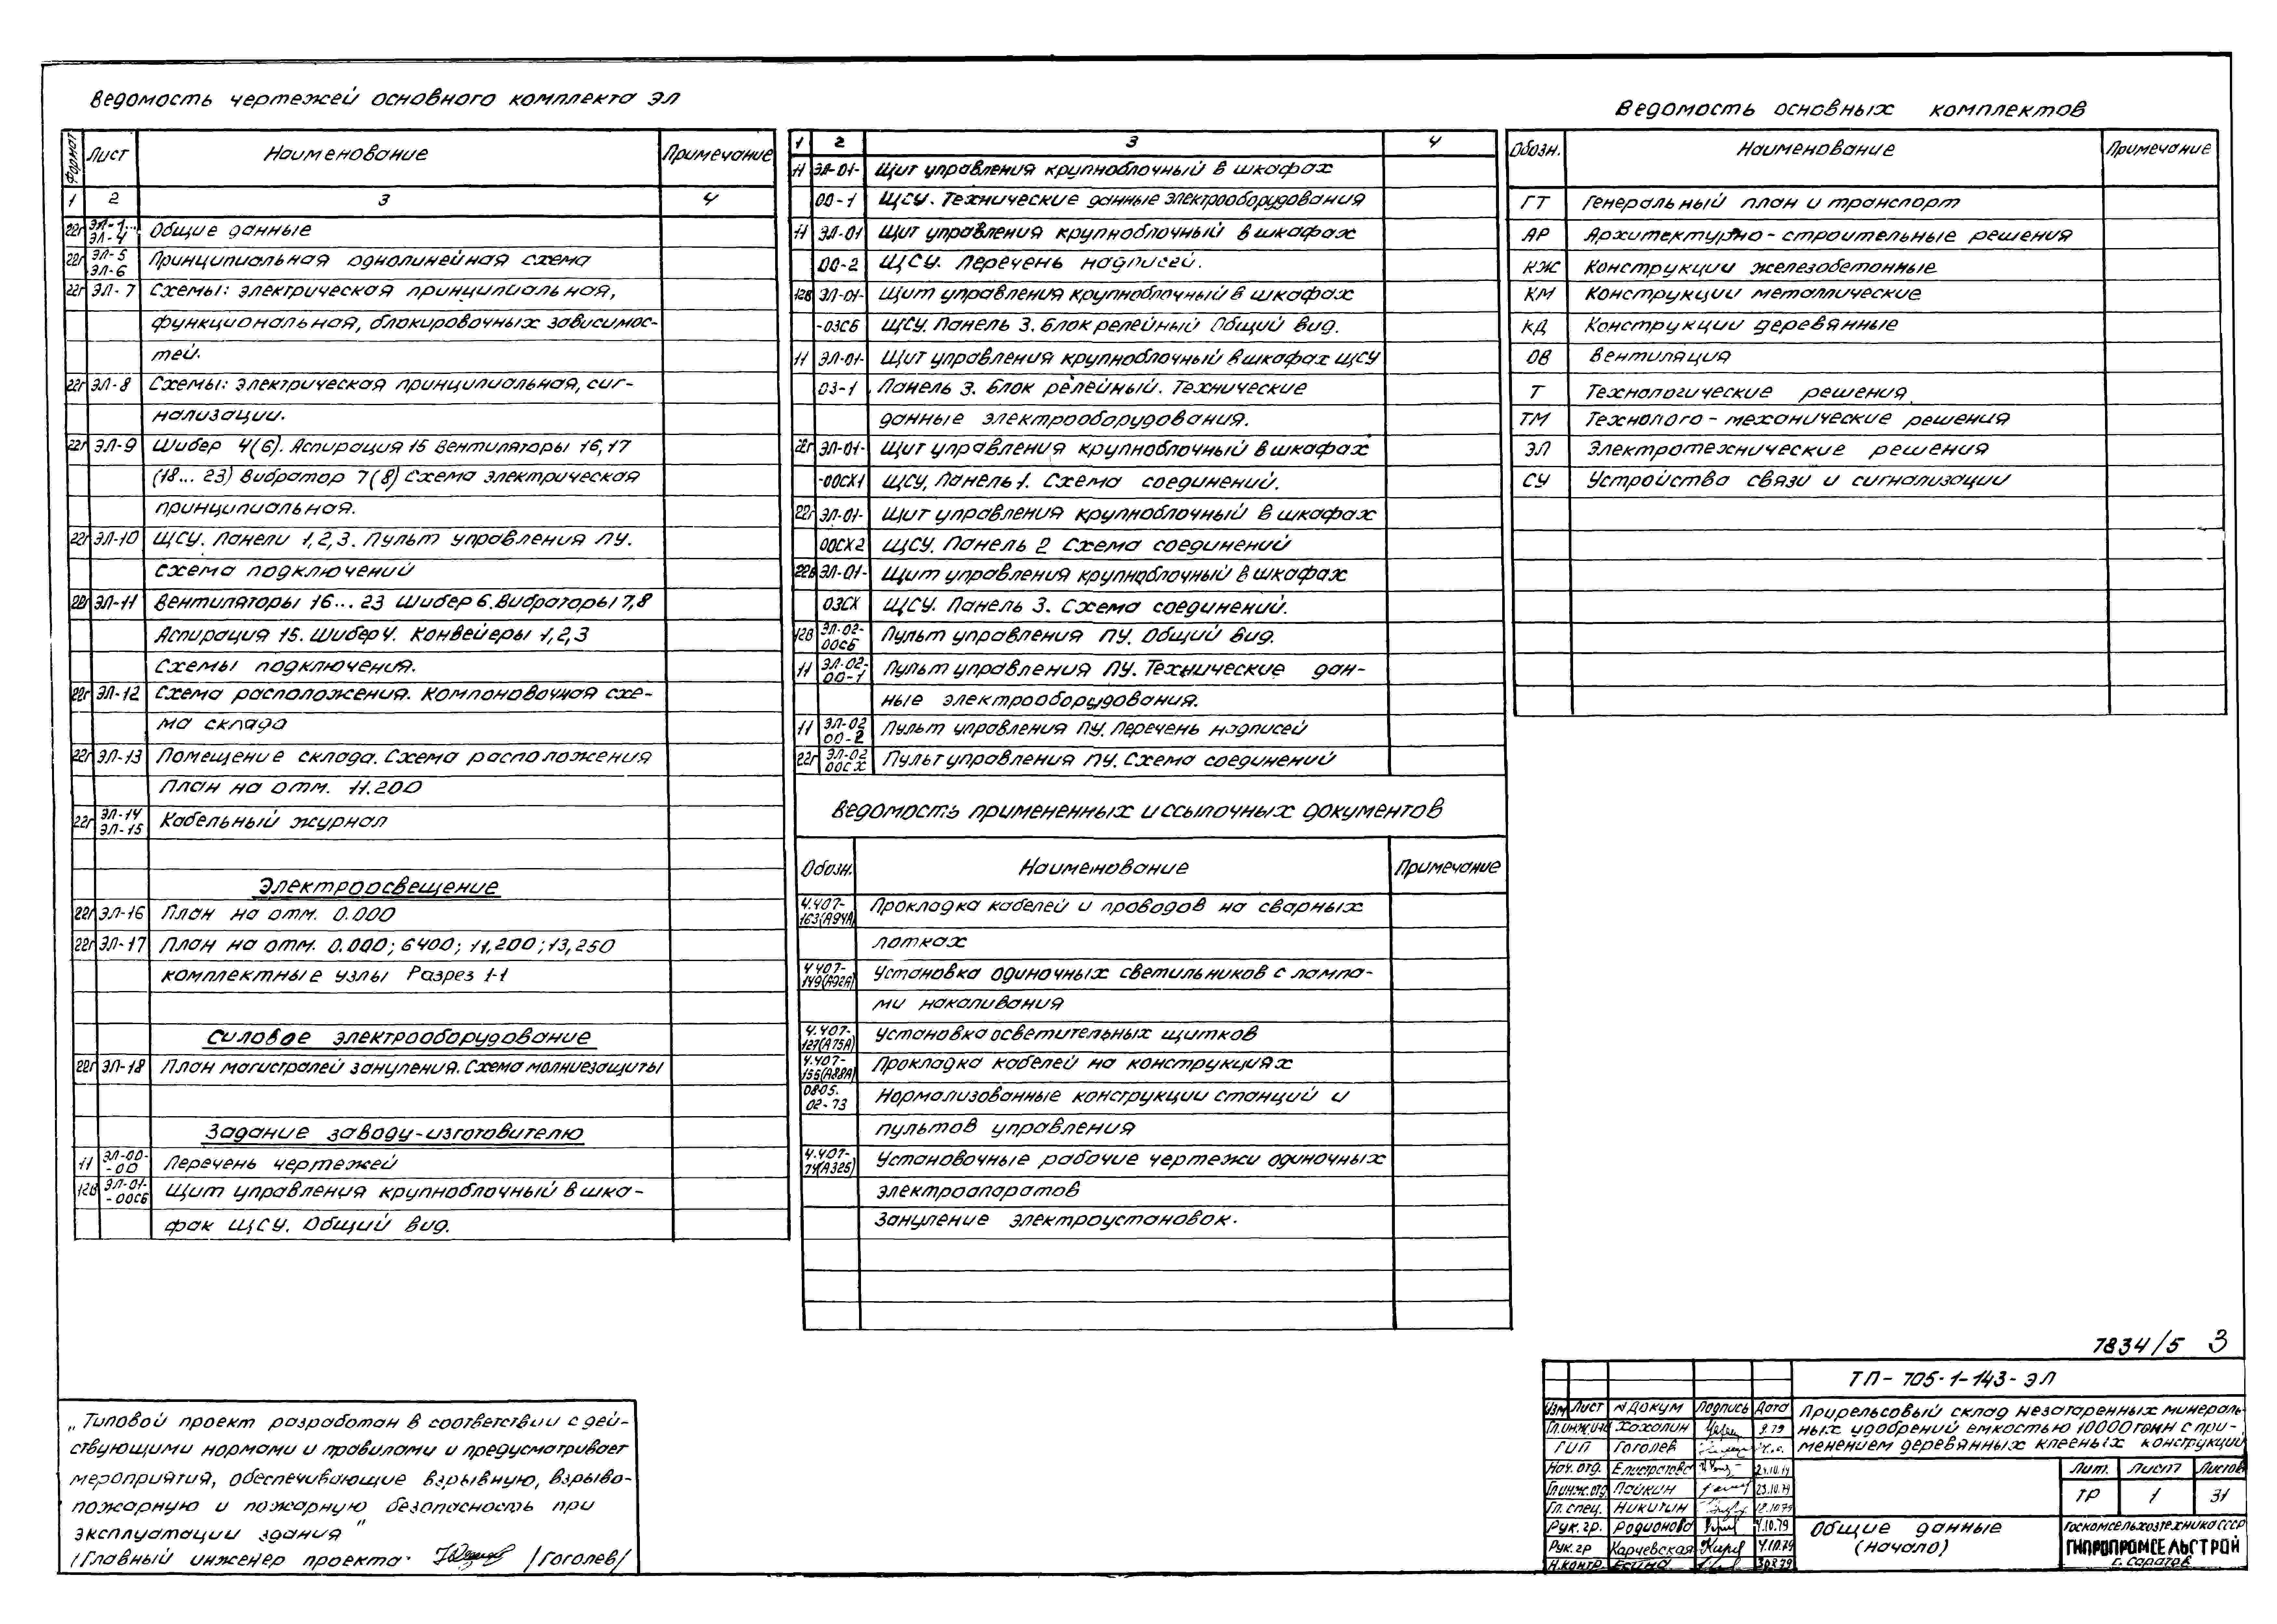 Ведомость чертежей основного комплекта ЭЛ
Формат Лист Наименование Примечание
1 2 3 4
22г ЭЛ-1... ЭЛ-4 Общие данные
22г ЭЛ-5 ЭЛ-6 Принципиальная однолинейная схема
22г ЭЛ-7 Схемы: электрическая принципиальная,
функциональная, блокировочных зависимос-
тей.
22г ЭЛ-8 Схемы: электрическая принципиальная, сиг-
нализации.
22г ЭЛ-9 Шибер 4(6). Аспирация 15 Вентиляторы 16,17
(18... 23) Вибратор 7(8) Схема электрическая
принципиальная.
22г ЭЛ-10 ЩСУ. Панели 1,2,3. Пульт управления ПУ.
схема подключений
22г ЭЛ-11 Вентиляторы 16... 23 Шибер 6. Вибраторы 7,8
Аспирация 15. Шибер 4. Конвейеры 1,2,3
Схемы подключения.
22г ЭЛ-12 Схема расположения. Компоновочная схе-
ма склада
22г ЭЛ-13 Помещение склада. Схема расположения
План на отм. 11.200
22г ЭЛ-14 ЭЛ-15 Кабельный журнал
Электроосвещение
22г ЭЛ-16 План на отм. 0.000
22г ЭЛ-17 План на отм. 0.000; 6400; 11,200; 13,250
комплектные узлы Разрез 1-1
Силовое электрооборудование
22г ЭЛ-18 План магистралей зануления. Схема молниезащиты
Задание заводу-изготовителю
11 ЭЛ-00- -00 Перечень чертежей
12в ЭЛ-01- -00СБ Щит управления крупноблочный в шка-
фах ЩСУ. Общий вид.
1 2 3 4
11 ЭЛ-01- Щит управления крупноблочный в шкафах
00-1 ЩСУ. Технические данные электрооборудования
11 ЭЛ-01 Щит управления крупноблочный в шкафах
00-2 ЩСУ. Перечень надписей.
12в ЭЛ-01- Щит управления крупноблочный в шкафах
-03СБ ЩСУ. Панель 3. Блок релейный Общий вид.
11 ЭЛ-01- Щит управления крупноблочный в шкафах ЩСУ
03-1 Панель 3. Блок релейный. Технические
данные электрооборудования.
22г ЭЛ-01- Щит управления крупноблочный в шкафах
-00СХ1 ЩСУ, Панель 1. Схема соединений.
22г ЭЛ-01- Щит управления крупноблочный в шкафах
00СХ2 ЩСУ. Панель 2 Схема соединений
22в ЭЛ-01- Щит управления крупноблочный в шкафах
03СХ ЩСУ. Панель 3. Схема соединений.
12в ЭЛ-02- 00СБ Пульт управления ПУ. Общий вид.
11 ЭЛ-02- 00-1 Пульт управления ПУ. Технические дан-
ные электрооборудования.
11 ЭЛ-02 00-2 Пульт управления ПУ. Перечень надписей
22г ЭЛ-02 00СХ Пульт управления ПУ. Схема соединений
Ведомость примененных и ссылочных документов
Обозн. Наименование Примечание
4.407-163(А94А) Прокладка кабелей и проводов на сварных
лотках
4.407-149(А92А) Установка одиночных светильников с лампа-
ми накаливания
4.407-127(А75А) Установка осветительных щитков
4.407-155(А88А) Прокладка кабелей на конструкциях
0805. 02-73 Нормализованные конструкции станций и
пультов управления
4.407-74(А325) Установочные рабочие чертежи одиночных
электроапаратов
Зануление электроустановок.
Ведомость основных комплектов
Обозн. Наименование Примечание
ГТ Генеральный план и транспорт
АР Архитектурно-строительные решения
КЖ Конструкции железобетонные
КМ Конструкции металлические
КД Конструкции деревянные
ОВ Вентиляция
Т Технологические решения.
ТМ Технолого-механические решения
ЭЛ Электротехнические решения
СУ Устройства связи и сигнализации
„Типовой проект разработан в соответствии с дей-
ствующими нормами и правилами и предусматривает
мероприятия, обеспечивающие взрывную, взрыво-
пожарную и пожарную безопасность при
эксплуатации здания"
/Главный инженер проекта. /Гоголев/
7834/5 3
ТП-705-1-143-ЭЛ
Изм Лист №Докум Подпись Дата
Прирельсовый склад незатаренных минераль-
ных удобрений емкостью 10000 тонн с при-
менением деревянных клееных конструкций
Хохолин 9.79
ГИП Гоголев
Нач. отд. Елистратова 23.10.79
Гл.инж.отд Пайкин 23.10.79
Гл. спец. Никитин 12.10.79
Рук. гр. Родионова 4.10.79
Рук. гр Карчевская 4.10.79
Н.контр. Есина
Лит. Лист Листов
ТР 1 31
Общие данные
(начало)
Госкомсельхозтехника СССР
ГИПРОПРОМСЕЛЬСТРОЙ
г. Саратов